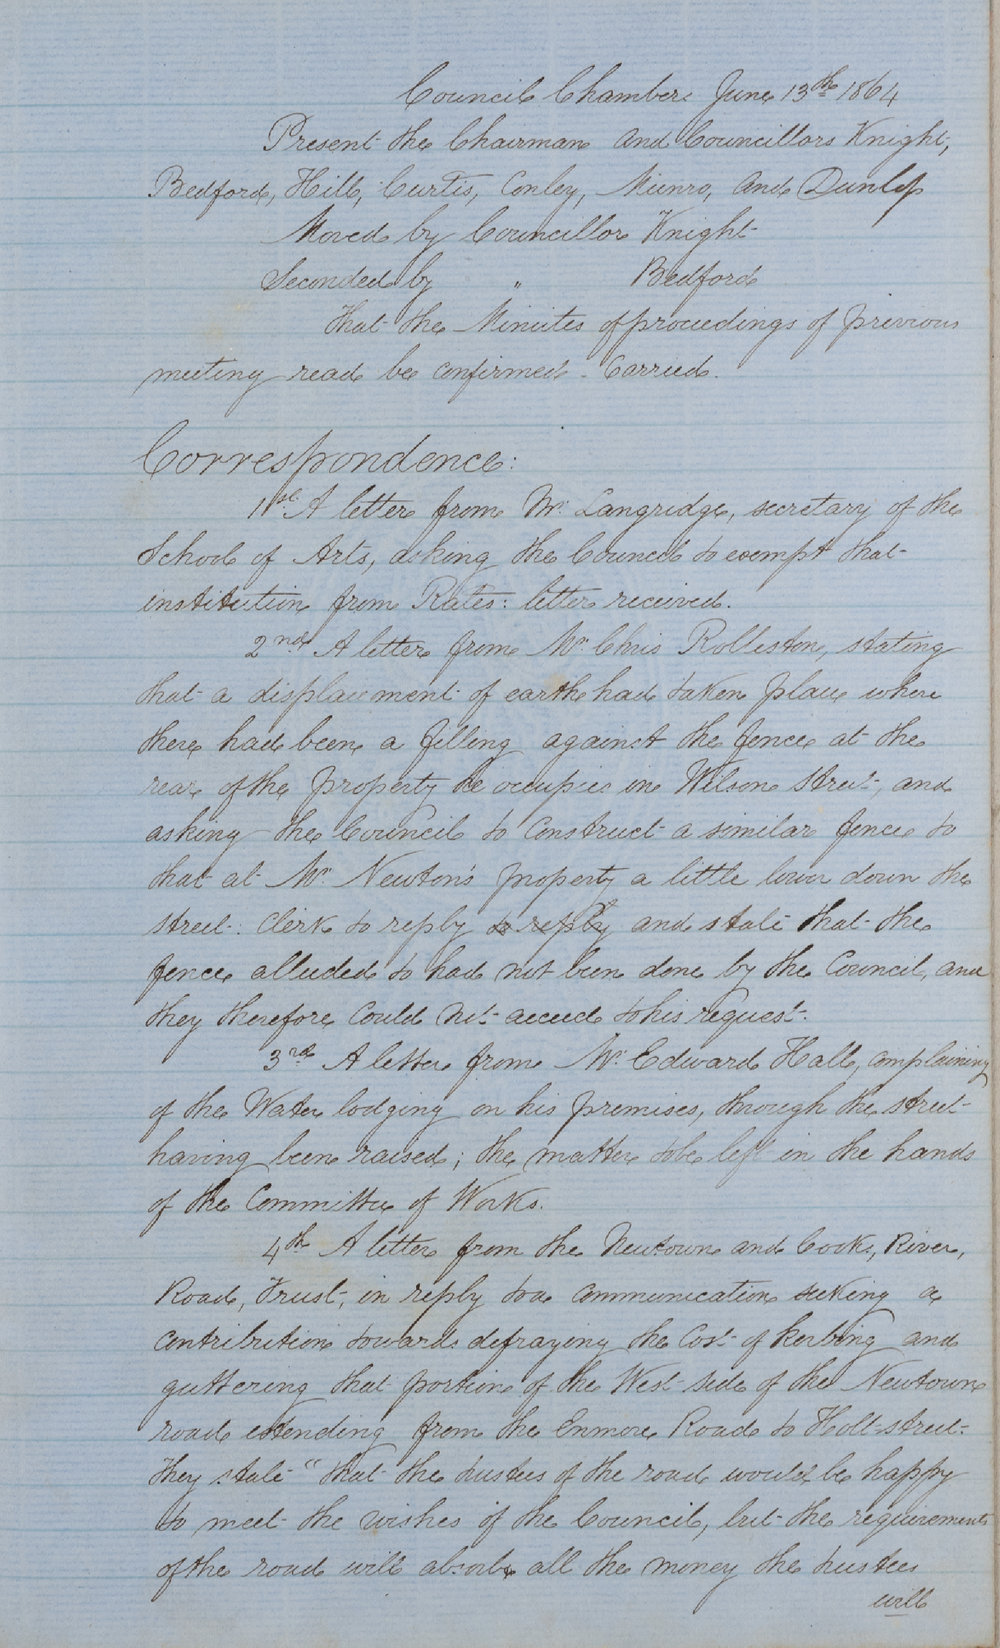 Council Chambers June 13th 1864
Present the Chairman and Councillors Knight,
Bedford, Hill, Curtis, Conley, Munro, and Dunlop
Moved by Councillor Knight
Seconded by " Bedford
that the Minutes of proceedings of previous
meeting read be confirmed - Carried.
Correspondence:
1st A letter from Mr. Langridge, secretary of the
School of Arts, asking the Council to exempt that
institution from Rates: letter received.
2nd A letter from Mr Chris Rolleston, stating
that a displacement of earth had taken place where
there had been a filling against the fence at the
rear of the property he occupies in Wilson Street, and
asking the Council to Construct a similar fence to
that at Mr. Newton's property a little lower down the
street: Clerk to reply to reply and state that the
fence alluded to had not been done by the Council, and
they therefore Could not acceed to his request.
3rd A letter from Mr. Edward Hall, complaining
of the Water lodging on his premises, through the street
having been raised; the matter to be left in the hands
of the Committee of Works.
4th A letter from the Newtown and Cooks, River,
Road, Trust, in reply to a communication seeking a
contribution towards defraying the Cost of Kerbing and
guttering that portion of the West side of the Newtown
road extending from the Enmore Road to Holt-street-
They state "that the trustees of the road would be happy
to meet the wishes of the Council, but the requirements
of the road will absorb all the money the trustees
will